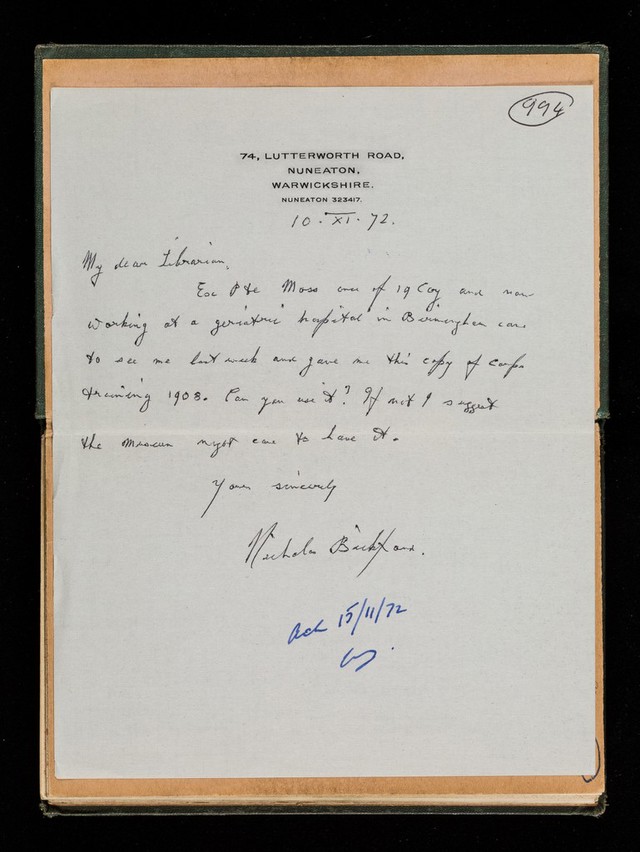 994
74, LUTTERWORTH ROAD,
NUNEATON,
WARWICKSHIRE.
NUNEATON 323417.
10. XI. 72.
My dear Librarian,
Ex Pte Moss once of 19 Coy and now
working at a geriatric hospital in Birmingham came
to see me last week and gave me this copy of Corps
training 1903. Can you use it? If not I suggest
the museum might care to have it.
Yours sincerely
Nicholas
Ack 15/11/72